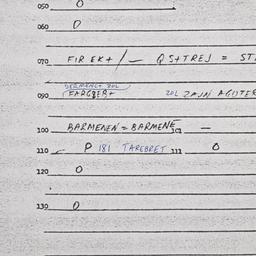 050 0
060 0
070 FIREK+ / — QS+TREJ = ST
DERMENG+ ZOL
090 FARGBEB+ ZOL ZAJN AGISTER
100 BARMENEN = BARMENE —
110 P 181 TAREBRET 111 0
120 0
130 0